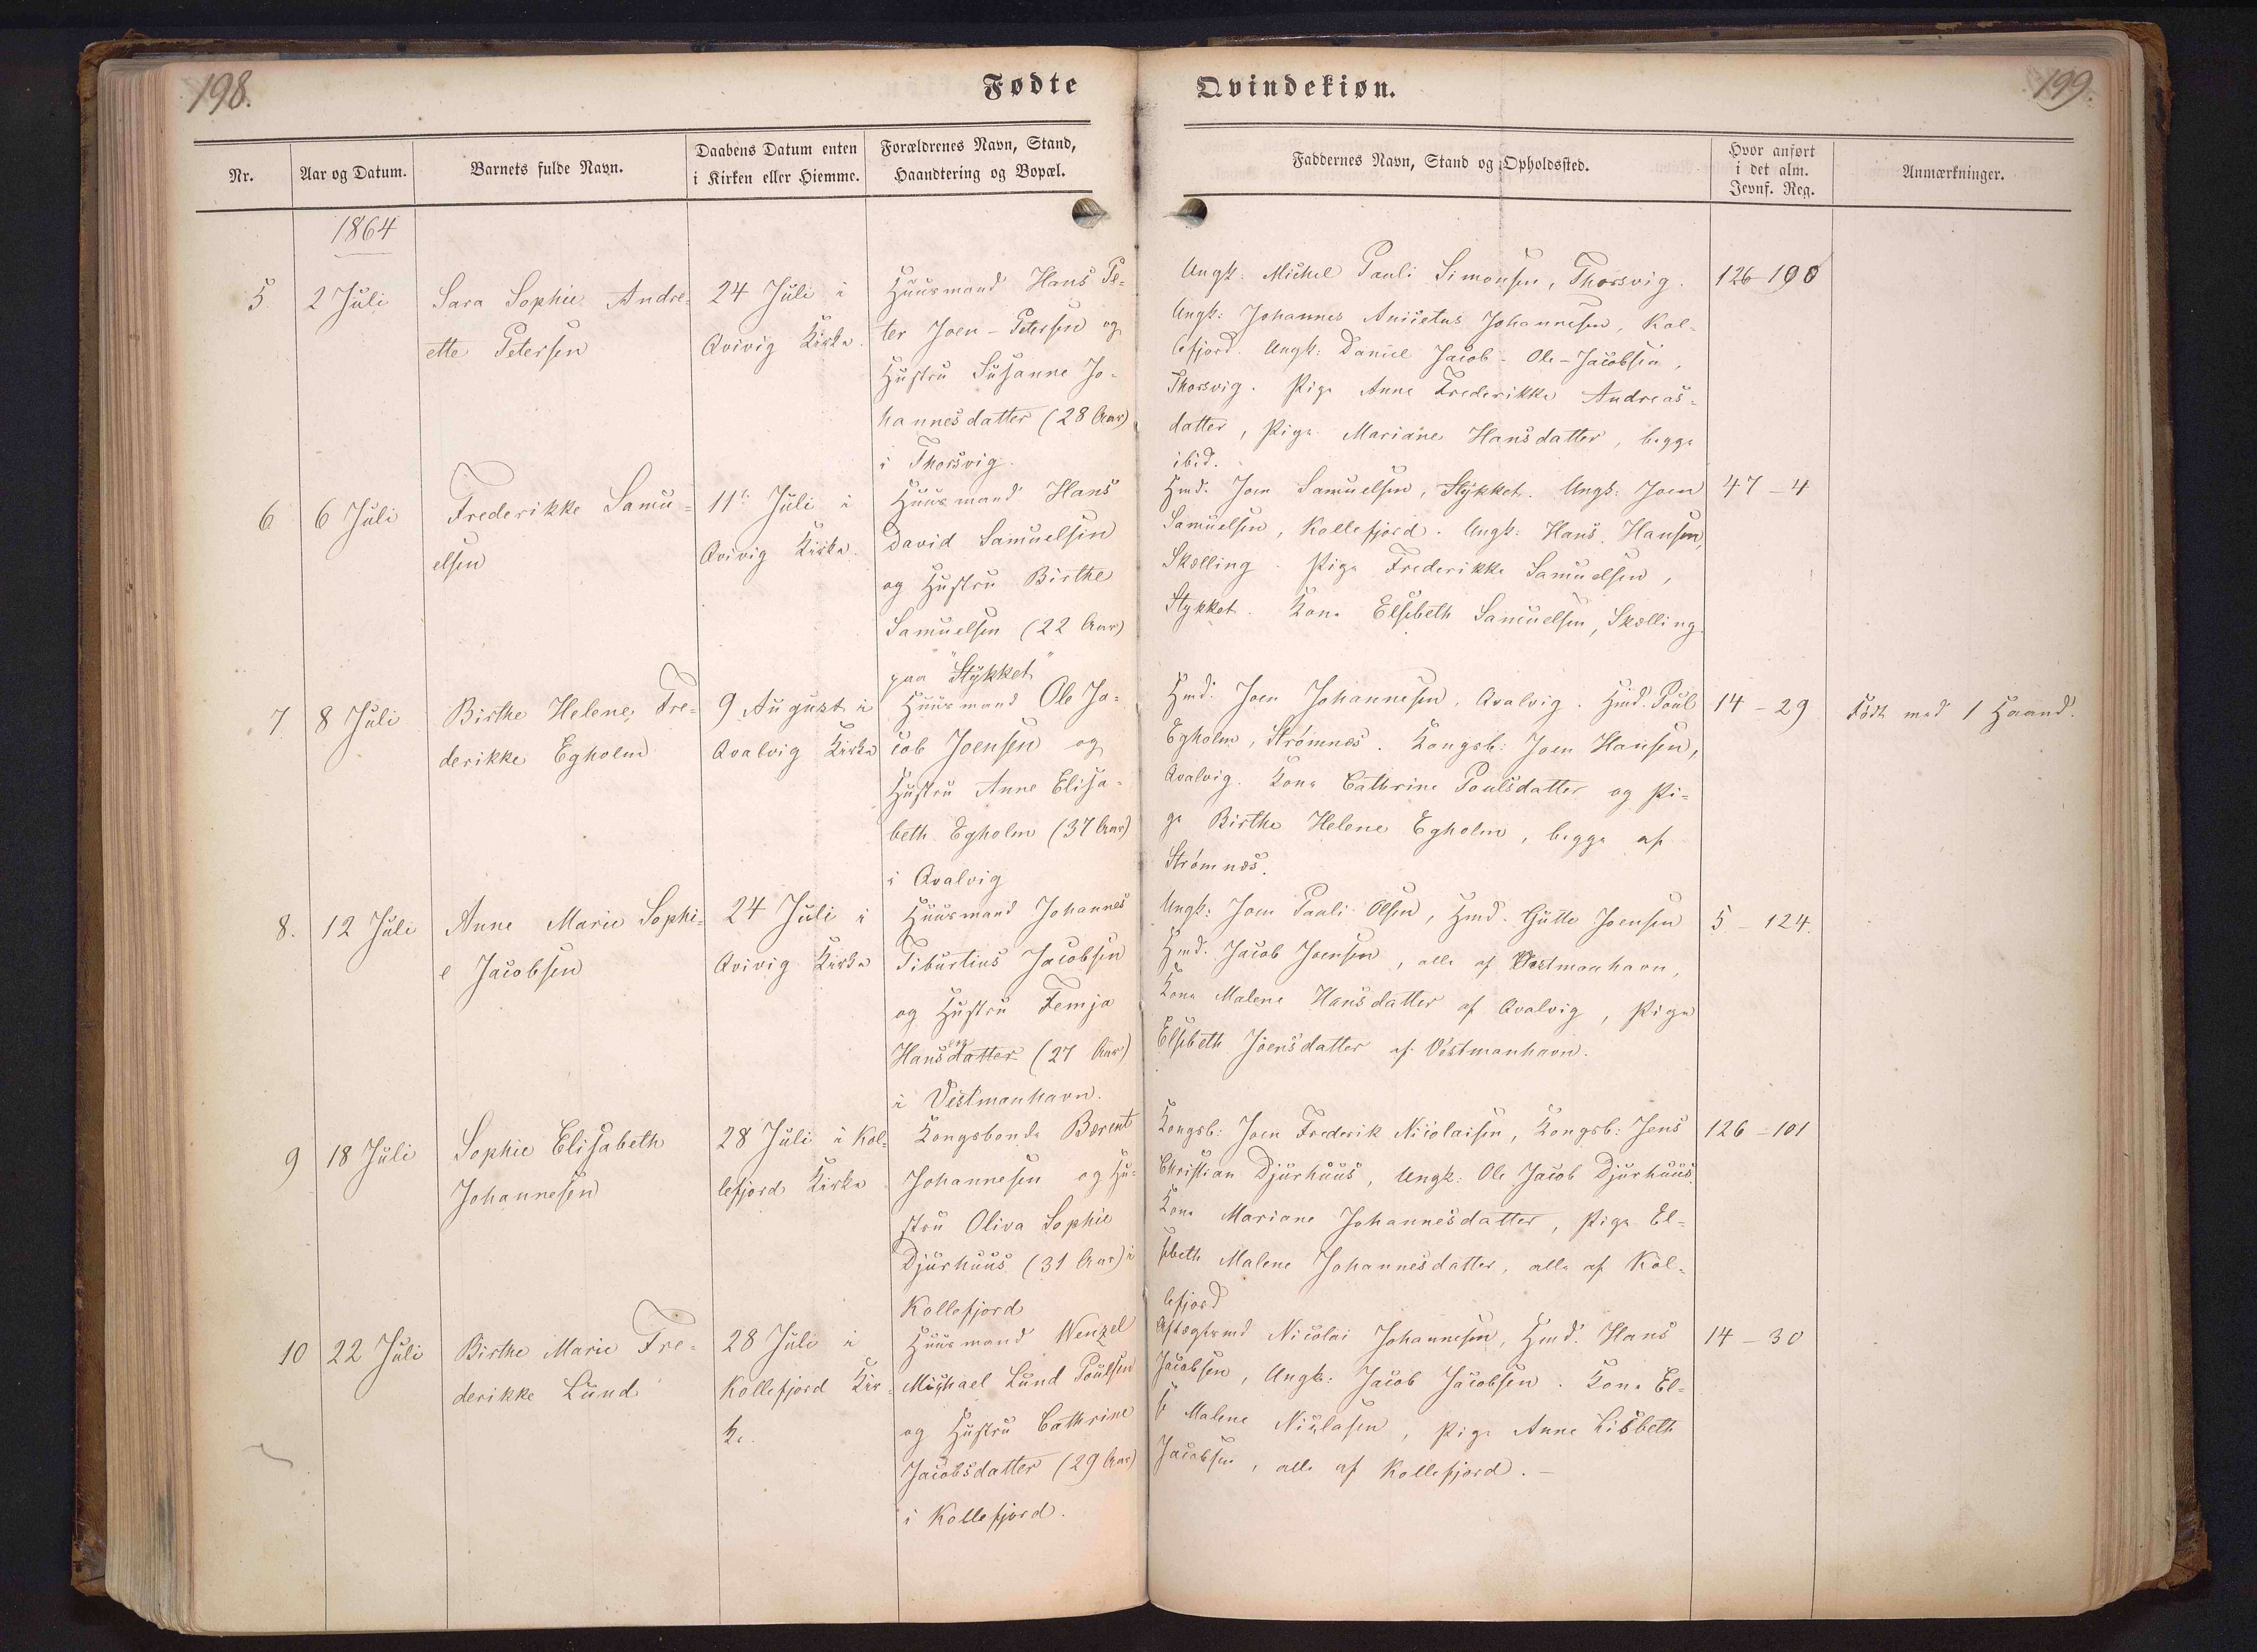 198.
Fødte
Qvindekiøn.
199.
Nr.
Aar og Datum.
Barnets fulde Navn.
Daabens Datum enten
i Kirken eller Hiemme.
Forældrenes Navn, Stand,
Haandtering og Bopæl.
Faddernes Navn, Stand og Opholdssted.
Hvor anført
i det alm.
Jevnf. Reg.
Anmærkninger.
1864
5.
2 Juli
Sara Sophie Andre-
ette Petersen
24 Juli i
Qvivig Kirke.
Huusmand Hans Pe-
ter Joen-Petersen og
Hustru Susanne Jo-
hannesdatter (28 Aar)
i Thorsvig.
Ungk. Michel Pauli Simonsen, Thorsvig.
Ungk: Johannes Anicetus Johannesen, Kol-
lefjord. Ungk: Daniel Jacob-Ole-Jacobsen,
Thorsvig. Pige Anne Frederikke Andreas-
datter, Pige Mariane Hansdatter, begge
ibid.
126-100
6
6 Juli
Frederikke Samu-
elsen
11te Juli i
Qvivig Kirke.
Huusmand Hans
David Samuelsen
og Hustru Birthe
Samuelsen (22 Aar)
paa "Stykket"
Hmd. Joen Samuelsen, Stykket. Ungk: Joen
Samuelsen, Kollefjord. Ungk: Hans Hansen,
Skælling. Pige Frederikke Samuelsen,
Stykket. Kone Elsebeth Samuelsen, Skælling.
47-4
7.
8 Juli
Birthe Helene Fre-
derikke Egholm
9 August i
Qvalvig Kirke
Huusmand Ole Ja-
cob Joensen og
Hustru Anne Elisa-
beth Egholm (37 Aar)
i Qvalvig
Hmd. Joen Johannesen, Qvalvig. Hmd. Poul
Egholm, Strømnæs. Kongsb: Joen Hansen,
Qvalvig. Kone Cathrine Poulsdatter og Pi-
ge Birthe Helene Egholm, begge af
Strømnæs.
14-29
Født med 1 Haand.
8.
12 Juli
Anne Marie Sophi-
e Jacobsen
24 Juli i
Qvivig Kirke
Huusmand Johannes
Tiburtius Jacobsen
og Hustru Femja
Hansdatter (27 Aar)
i Vestmanhavn.
Ungk: Joen Pauli Olsen, Hmd. Gutte Joensen
Hmd. Jacob Joensen, alle af Vestmanhavn,
Kone Malene Hansdatter af Qvalvig, Pige
Elsebeth Joensdatter af Vestmanhavn.
5-124.
9
18 Juli
Sophie Elisabeth
Johannesen
28 Juli i Kol-
lefjord Kirke
Kongsbonde Berent
Johannesen og Hu-
stru Oliva Sophie
Djurhuus (31 Aar) i
Kollefjord
Kongsb: Joen Frederik Nicolaisen, Kongsb: Jens
Christian Djurhuus, Ungk: Ole Jacob Djurhuus.
Kone Mariane Johannesdatter, Pige El-
sebeth Malene Johannesdatter, alle af Kol-
lefjord
126-101
10
22 Juli
Birthe Marie Fre-
derikke Lund
28 Juli i
Kollefjord Kir-
ke.
Huusmand Wenzel
Michael Lund Poulsen
og Hustru Cathrine
Jacobsdatter (29 Aar)
i Kollefjord.
Aftægtsmd Nicolai Johannesen, Hmd. Hans
Jacobsen, Ungk: Jacob Jacobsen. Kone El-
se Malene Niclasen, Pige Anne Lisbeth
Jacobsen, alle af Kollefjord.-
14-30